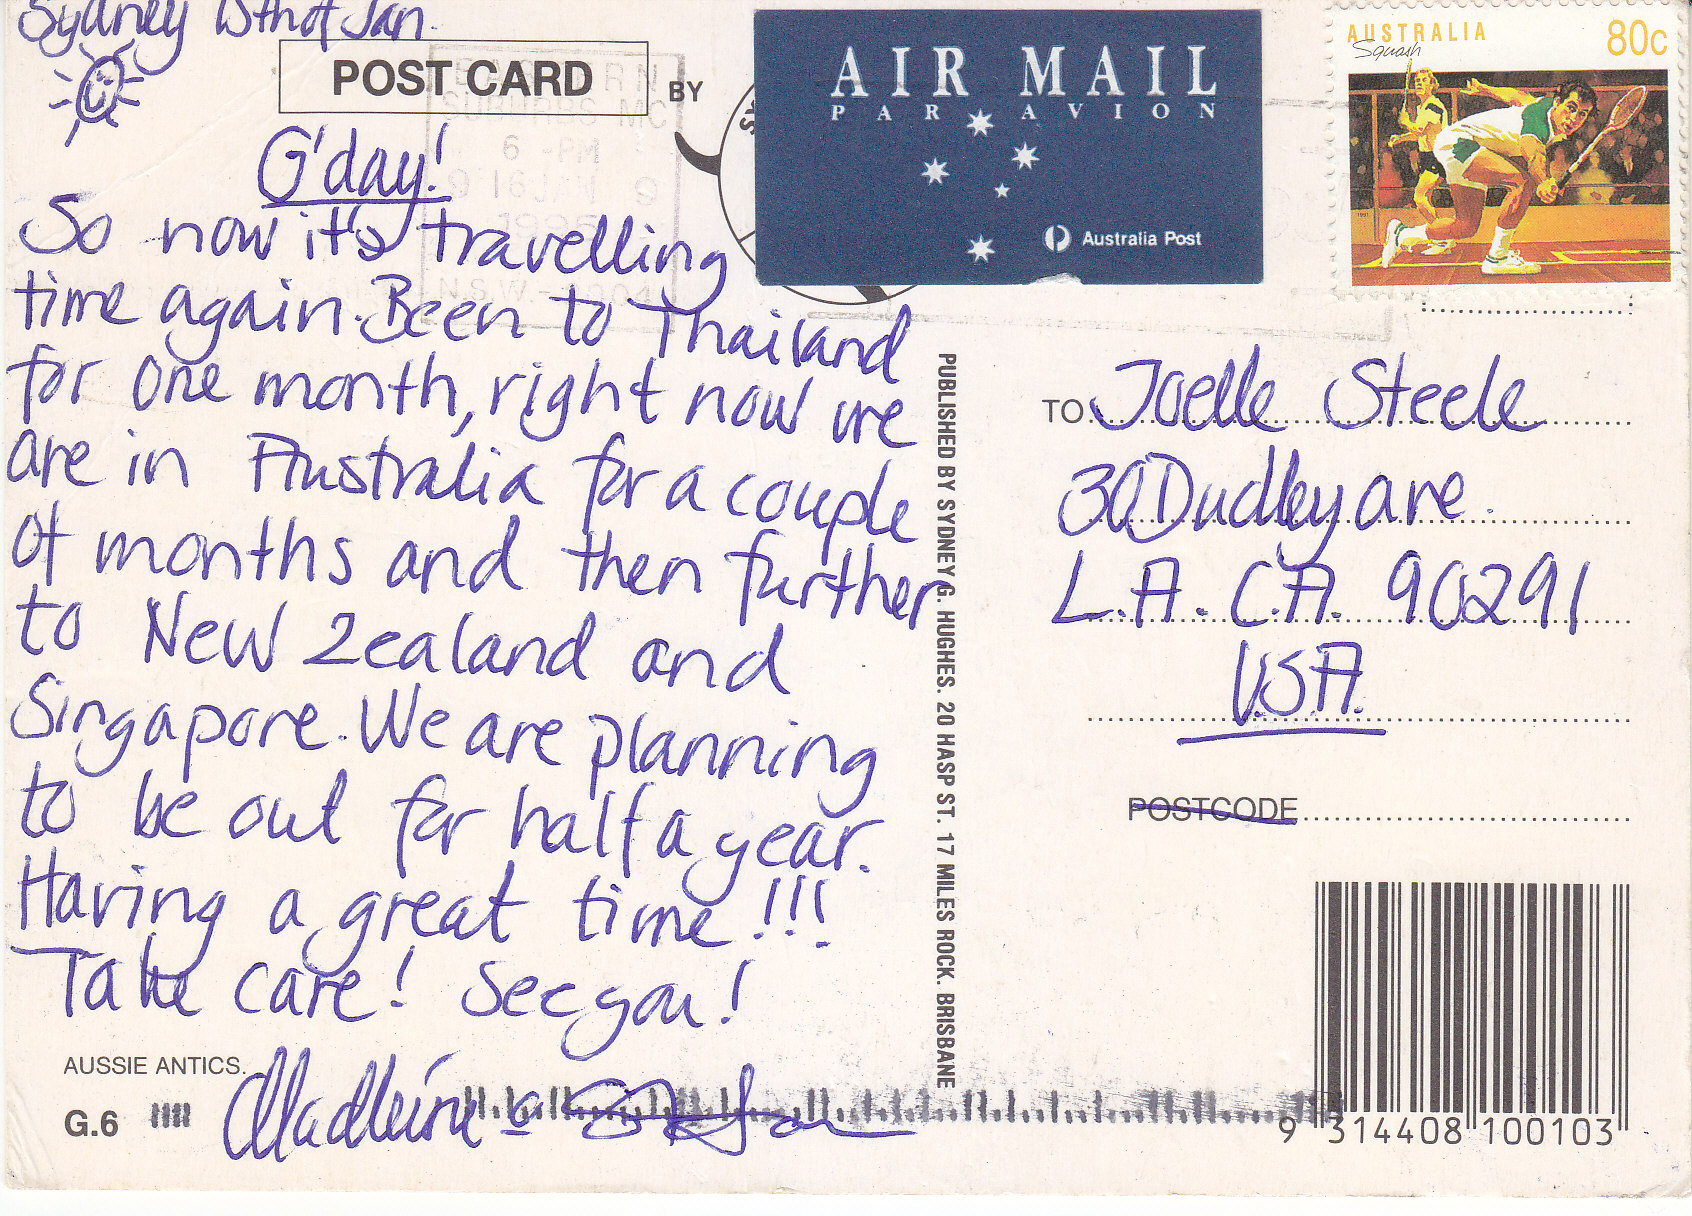 Sydney 15th of Jan.
POST CARD
BY
AIR MAIL
PAR AVION
Australia Post
AUSTRALIA
80c
Squash
1991
EASTERN
SUBURBS MC
6 -PM
16 JAN
G'day!
So now it's travelling
time again. Been to Thailand
for one month, right now we
are in Australia for a couple
of months and then further
to New Zealand and
Singapore. We are planning
to be out for half a year.
Having a great time!!!
Take care! See you!
AUSSIE ANTICS.
G.6
PUBLISHED BY SYDNEY G. HUGHES. 20 HASP ST. 17 MILES ROCK. BRISBANE
TO Joelle Steele
30 Dudley ave.
L.A. C.A. 90291
U.S.A.
POSTCODE
9 314408 100103